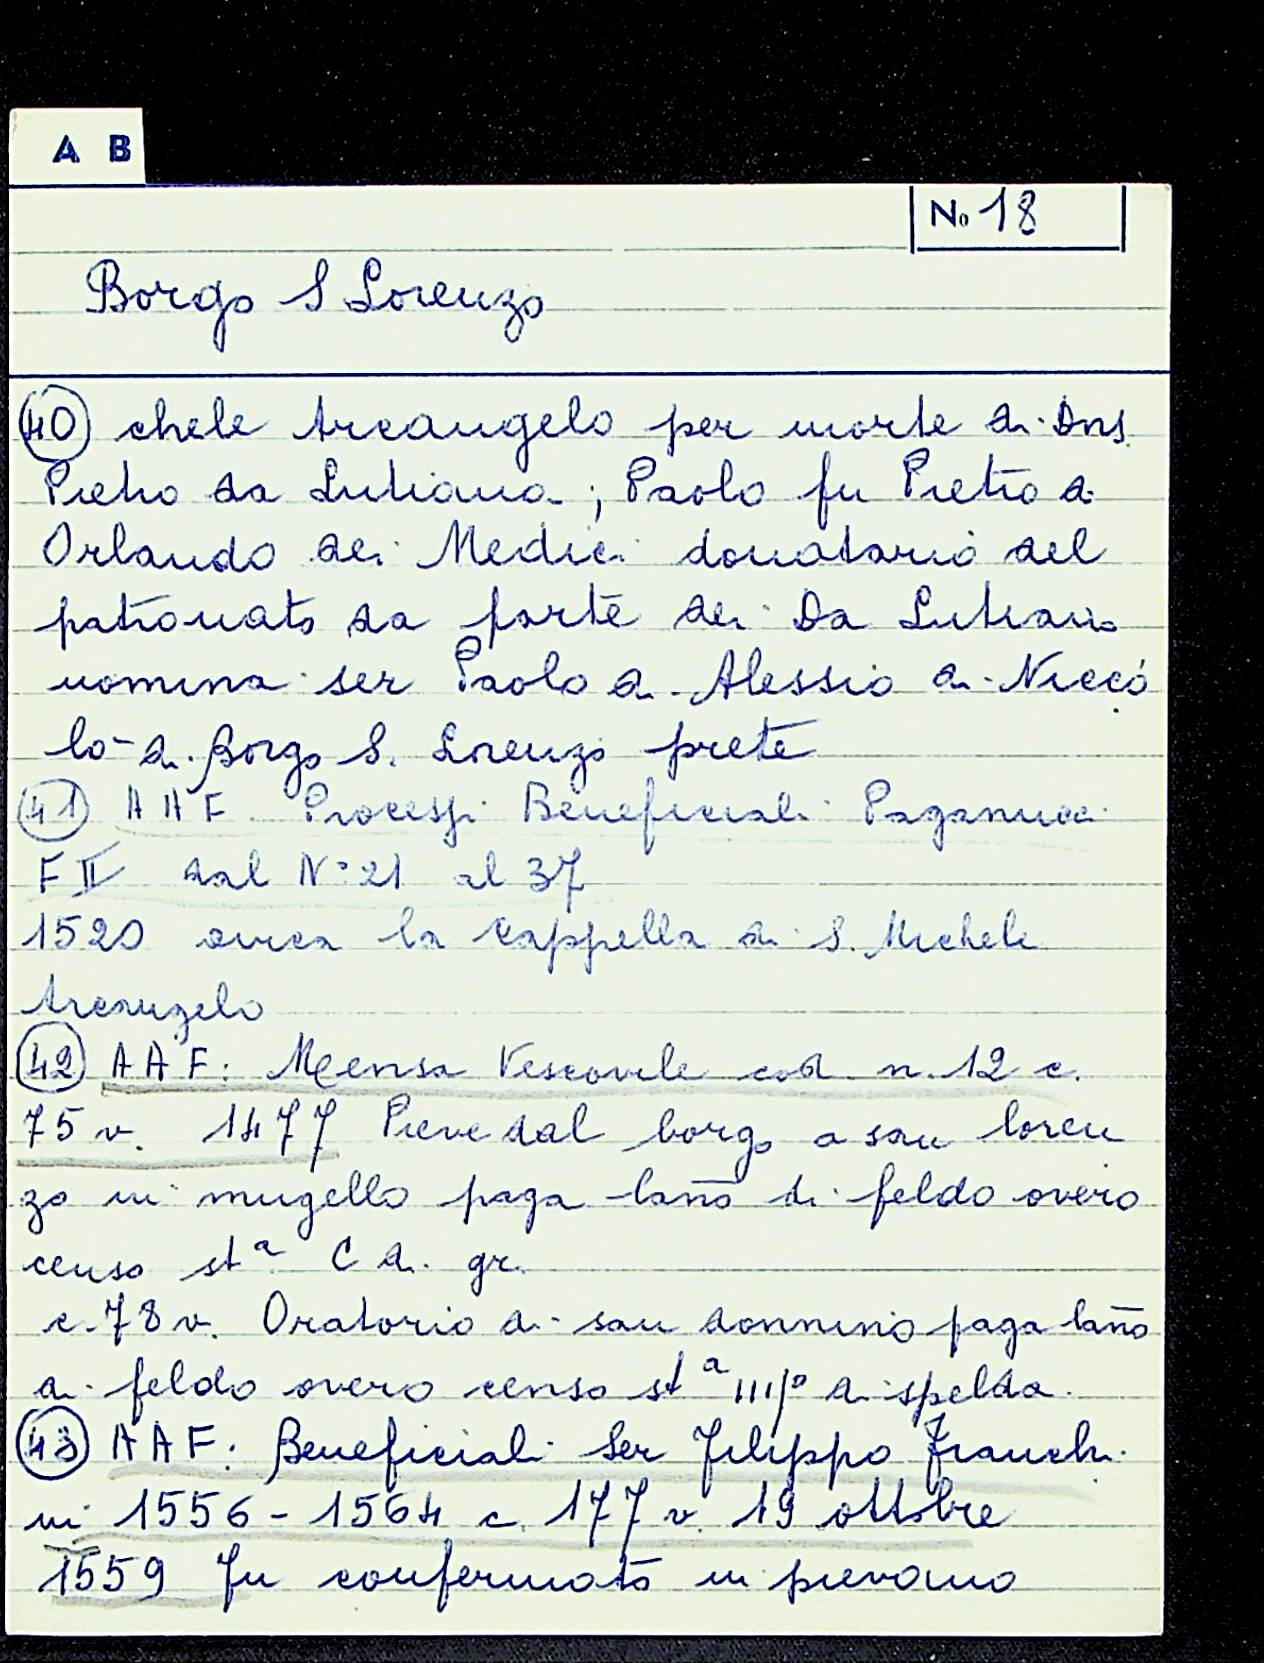 A B
No 18
Borgo S Lorenzo
40) chele Arcangelo per morte di Dns
Pietro da Lutiano; Paolo fu Pietro di
Orlando dei Medici donatario del
patronato da parte dei Da Lutiano
nomina ser Paolo di Alessio di Niccó
lo di Borgo S. Lorenzo prete
41) AAF. Processi Beneficiali Paganucci
F II dal N° 21 al 37
1520 circa la cappella di S. Michele
Arcangelo
42) AAF: Mensa Vescovile cod. n. 12 c.
75 v. 1477 Pieve dal borgo a san loren
zo in mugello paga lano di feldo overo
censo stª C di gr.
c. 78 v. Oratorio di san donnino paga lano
di feldo overo censo stª di spelda.
43) AAF: Beneficiali Ser Filippo Franchi
ni 1556 - 1564 c. 177 v. 19 ottobre
1559 Fu confermato in pievano